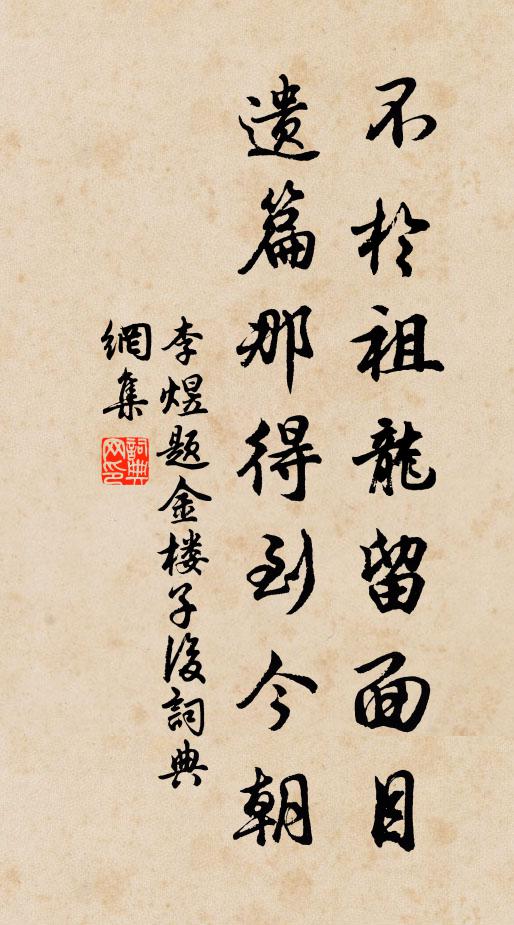 不於祖龍留面目
遺篇那得到今朝
李煜题金楼子後詞典
網集
詞典
网印